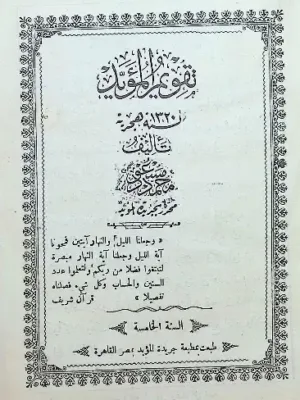 تقويم المؤيد
لسنة ١٣٢٠ هجرية
تأليف
محمد مسعود
محرر بجريدة المؤيد
« وجعلنا الليل والنهار آيتين فمحونا
آية الليل وجعلنا آية النهار مبصرة
لتبتغوا فضلا من ربكم ولتعلموا عدد
السنين والحساب وكل شيء فصلناه
تفصيلا » قرآن شريف
السنة الخامسة
طبعت بمطبعة جريدة المؤيد بمصر القاهرة